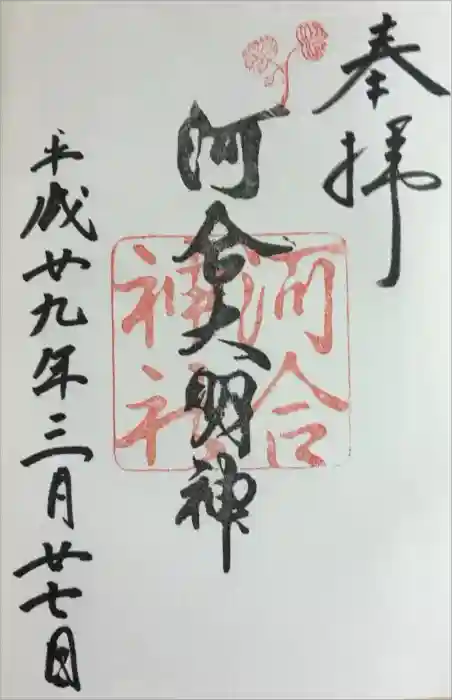 奉拝
河合大明神
河合
神社
平成廿九年三月廿七日